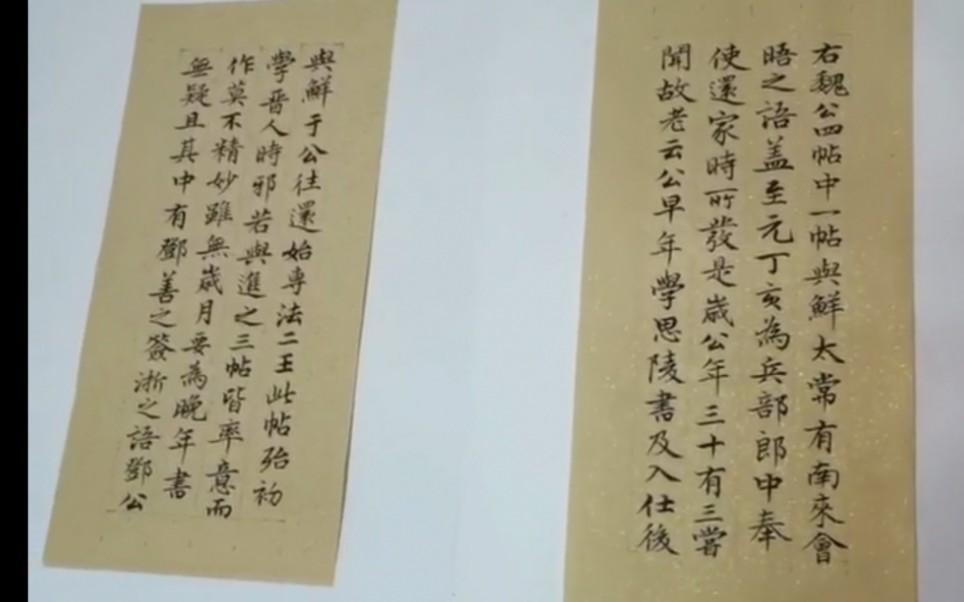 右魏公四帖中一帖與鮮太常有南來會
晤之語盖至元丁亥為兵部郎中奉
使還家時所發是歲公年三十有三嘗
聞故老云公早年學思陵書及入仕後
與鮮于公往還始專法二王此帖殆初
學晉人時邪若與進之三帖皆率意而
作莫不精妙雖無歲月要為晚年書
無疑且其中有鄧善之簽浙之語鄧公